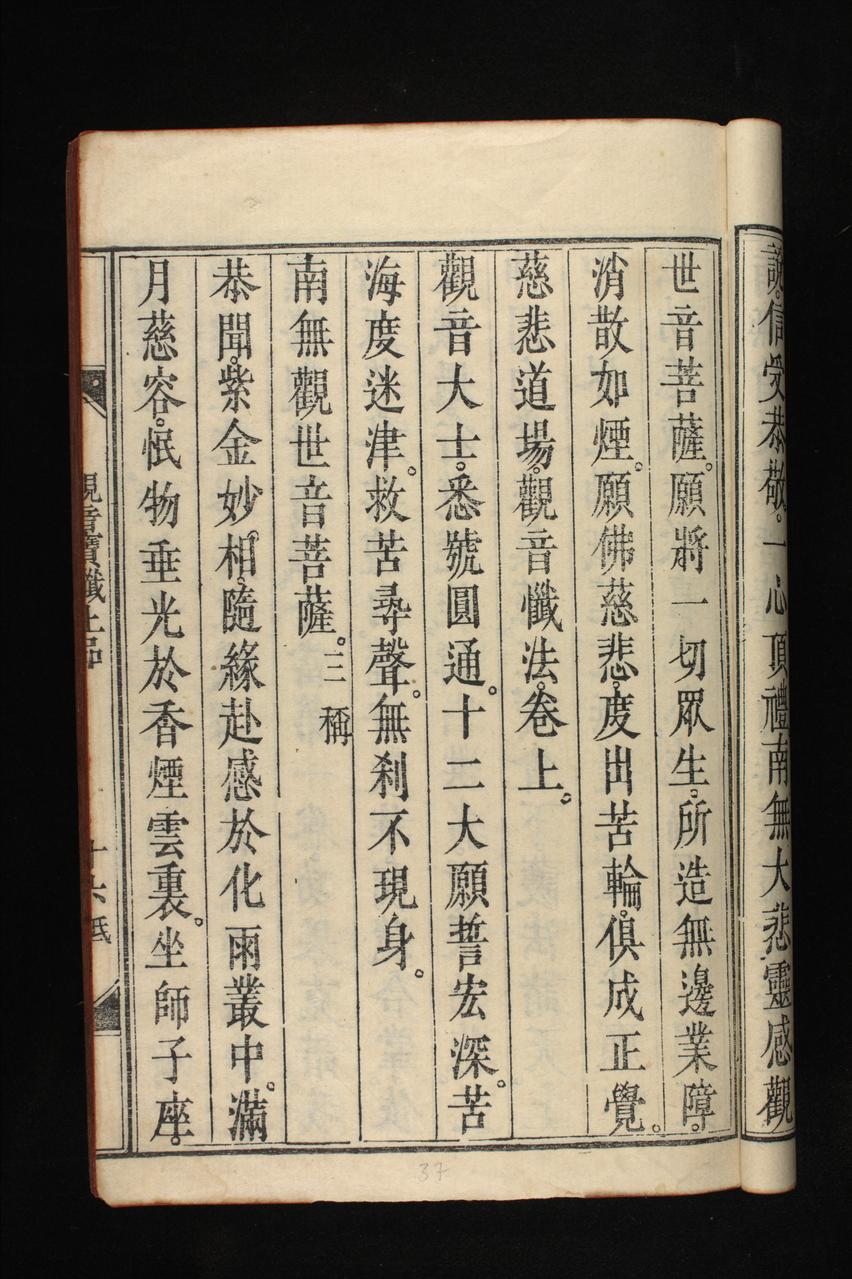 信受恭敬。一心頂禮南無大悲靈感觀
世音菩薩。願將一切眾生。所造無邊業障。
消散如煙。願佛慈悲。度出苦輪。俱成正覺。
慈悲道場。觀音懺法。卷上。
觀音大士。悉號圓通。十二大願誓宏深。苦
海度迷津。救苦尋聲。無剎不現身。
南無觀世音菩薩。三稱
恭聞。紫金妙相。隨緣赴感於化雨叢中。滿
月慈容。愍物垂光於香煙雲裏。坐師子座。
觀音寶懺上
十六
37